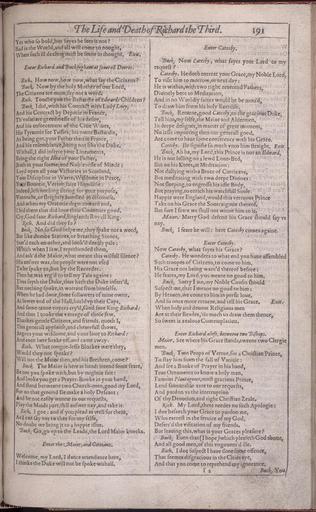 The Life and Death of Richard the Third. 191
Yet who so bold, but sayes he sees it not?
Bad is the World, and all will come to nought,
When such ill dealing must be seene in thought. Exit.
Enter Richard and Buckingham at severall Doores.
Rich. How now, how now, what say the Citizens?
Buck. Now by the holy Mother of our Lord,
The Citizens are mum, say not a word.
Rich. Toucht you the Bastardie of Edwards Children?
Buck. I did, with his Contract with Lady Lucy,
And his Contract by Deputie in France,
Th'unsatiate greedinesse of his desire,
And his enforcement of the Citie Wives,
His Tyrannie for Trifles, his owne Bastardie,
As being got, your Father then in France,
And his resemblance, being not like the Duke.
Withall, I did inferre your Lineaments,
Being the right Idea of your Father,
Both in your forme, and Noblenesse of Minde:
Layd open all your Victories in Scotland,
Your Discipline in Warre, Wisdome in Peace,
Your Bountie, Vertue, faire Humilitie:
Indeed, left nothing fitting for your purpose,
Untoucht, or sleightly handled in discourse.
And when my Oratorie drew toward end,
I bid them that did love their Countries good,
Cry, God save Richard, Englands Royall King.
Rich. And did they so?
Buck. No, so God helpe me, they spake not a word,
But like dumbe Statues, or breathing Stones,
Star'd each on other, and look'd deadly pale:
Which when I saw, I reprehended them,
And ask'd the Maior, what meant this wilfull silence?
His answer was, the people were not used
To be spoke to, but by the Recorder.
Then he was urg'd to tell my Tale againe:
Thus sayth the Duke, thus hath the Duke inferr'd,
But nothing spoke, in warrant from himselfe.
When he had done, some followers of mine owne,
At lower end of the Hall, hurld up their Caps,
And some tenne voyces cry'd, God save King Richard:
And thus I tooke the vantage of those few.
Thankes gentle Citizens, and friends, quoth I,
This generall applause, and chearefull showt,
Argues your wisdome, and your love to Richard:
And even here brake off, and came away.
Rich. What tongue-lesse Blockes were they,
Would they not speake?
Will not the Maior then, and his Brethren, come?
Buck. The Maior is here at hand: intend some feare,
Be not you spoke with, but by mightie suit:
And looke you get a Prayer-Booke in your hand,
And stand betweene two Church-men, good my Lord,
For on that ground Ile make a holy Descant:
And be not easily wonne to our requests,
Play the Maids part, still answer nay, and take it.
Rich. I goe: and if you plead as well for them,
As I can say nay to thee for my selfe,
No doubt we bring it to a happie issue.
Buck. Go, go up to the Leads, the Lord Maior knocks.
Enter the Maior, and Citizens.
Welcome, my Lord, I dance attendance here,
I thinke the Duke will not be spoke withall.
Enter Catesby.
Buck. Now Catesby, what sayes your Lord to my
request?
Catesby. He doth entreat your Grace, my Noble Lord,
To visit him to morrow, or next day:
He is within, with two right reverend Fathers,
Divinely bent to Meditation,
And in no Worldly suites would he be mov'd,
To draw him from his holy Exercise.
Buck. Returne, good Catesby, to the gracious Duke,
Tell him, my selfe, the Maior and Aldermen,
In deepe designes, in matter of great moment,
No lesse importing then our generall good,
Are come to have some conference with his Grace.
Catesby. Ile signifie so much unto him straight. Exit.
Buck. Ah ha, my Lord, this Prince is not an Edward,
He is not lulling on a lewd Love-Bed,
But on his Knees, at Meditation:
Not dallying with a Brace of Curtizans,
But meditating with two deepe Divines:
Not sleeping, to engrosse his idle Body,
But praying, to enrich his watchfull Soule.
Happie were England, would this vertuous Prince
Take on his Grace the Soveraigntie thereof.
But sure I feare we shall not winne him to it.
Maior. Marry God defend his Grace should say us
nay.
Buck. I feare he will: here Catesby comes againe.
Enter Catesby.
Now Catesby, what sayes his Grace?
Catesby. He wonders to what end you have assembled
Such troopes of Citizens, to come to him,
His Grace not being warn'd thereof before:
He feares, my Lord, you meane no good to him.
Buck. Sorry I am, my Noble Cousin should
Suspect me, that I meane no good to him:
By Heaven, we come to him in perfit love,
And so once more returne, and tell his Grace. Exit.
When holy and devout Religious men
Are at their Beades, 'tis much to draw them thence,
So sweet is zealous Contemplation.
Enter Richard aloft, betweene two Bishops.
Maior. See where his Grace stands, tweene two Clergie
men.
Buck. Two Props of Vertue, for a Christian Prince,
To stay him from the fall of Vanitie:
And see a Booke of Prayer in his hand,
True Ornaments to know a holy man.
Famous Plantagenet, most gracious Prince,
Lend favourable eare to our requests,
And pardon us the interruption
Of thy Devotion, and right Christian Zeale.
Rich. My Lord, there needes no such Apologie:
I doe beseech your Grace to pardon me,
Who earnest in the service of my God,
Deferr'd the visitation of my friends.
But leaving this, what is your Graces pleasure?
Buck. Even that (I hope) which pleaseth God above,
And all good men, of this ungovern'd Ile.
Rich. I doe suspect I have done some offence,
That seemes disgracious in the Cities eye,
And that you come to reprehend my ignorance.
Buck. You